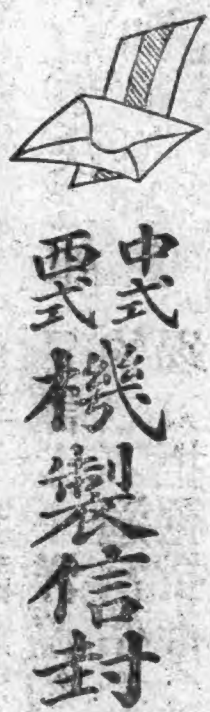 中式
西式
機製信封